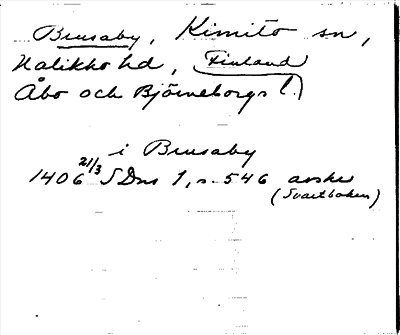 Brusaby, Kimito sn,
Halikko hd, Finland
Åbo och Björneborgs l.
i Brusaby
1406 21/3 SDns 1, s. 546 avskr
(Svartboken)